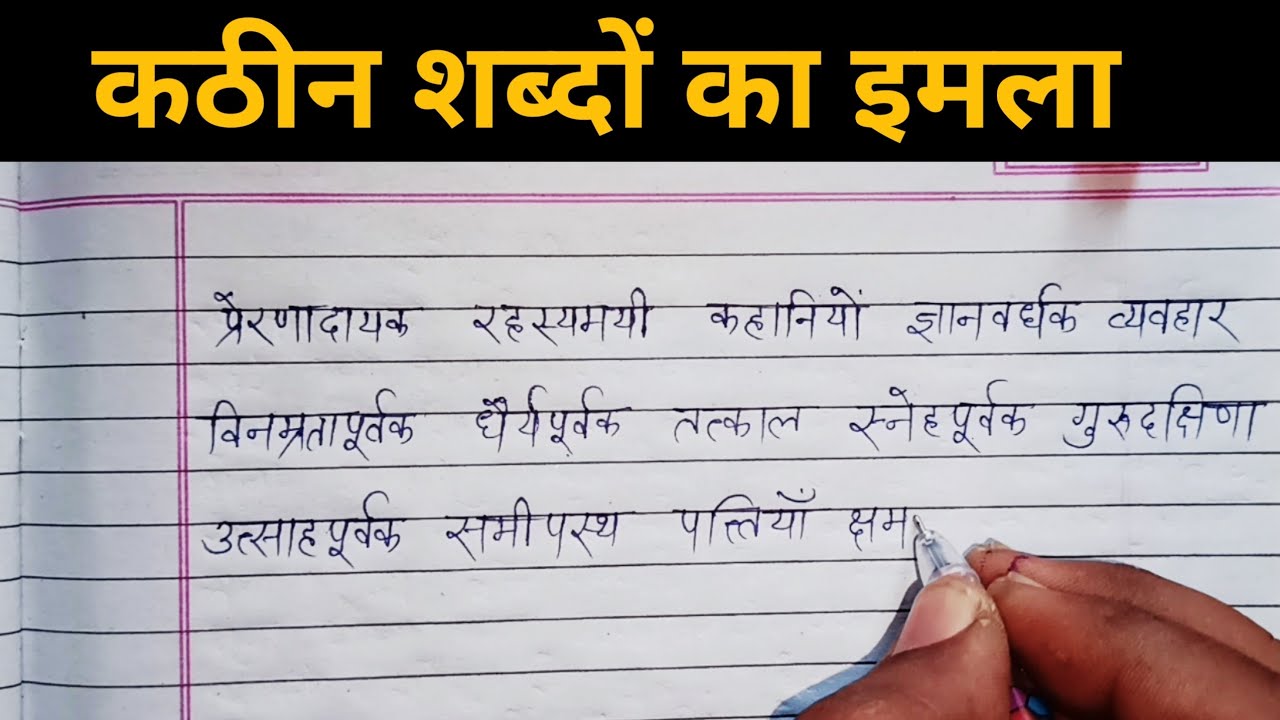 कठीन शब्दों का इमला
प्रेरणादायक रहस्यमयी कहानियों ज्ञानवर्धक व्यवहार
विनम्रतापूर्वक धैर्यपूर्वक तत्काल स्नेहपूर्वक गुरुदक्षिणा
उत्साहपूर्वक समीपस्थ पत्तियाँ क्षम